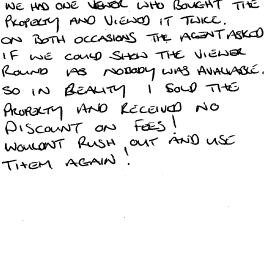 WE HAD ONE VIEWER WHO BOUGHT THE
PROPERTY AND VIEWED IT TWICE.
ON BOTH OCCASIONS THE AGENT ASKED
IF WE COULD SHOW THE VIEWER
ROUND AS NOBODY WAS AVAILABLE.
SO IN REALITY I SOLD THE
PROPERTY AND RECEIVED NO
DISCOUNT ON FEES!
WOULDNT RUSH OUT AND USE
THEM AGAIN!